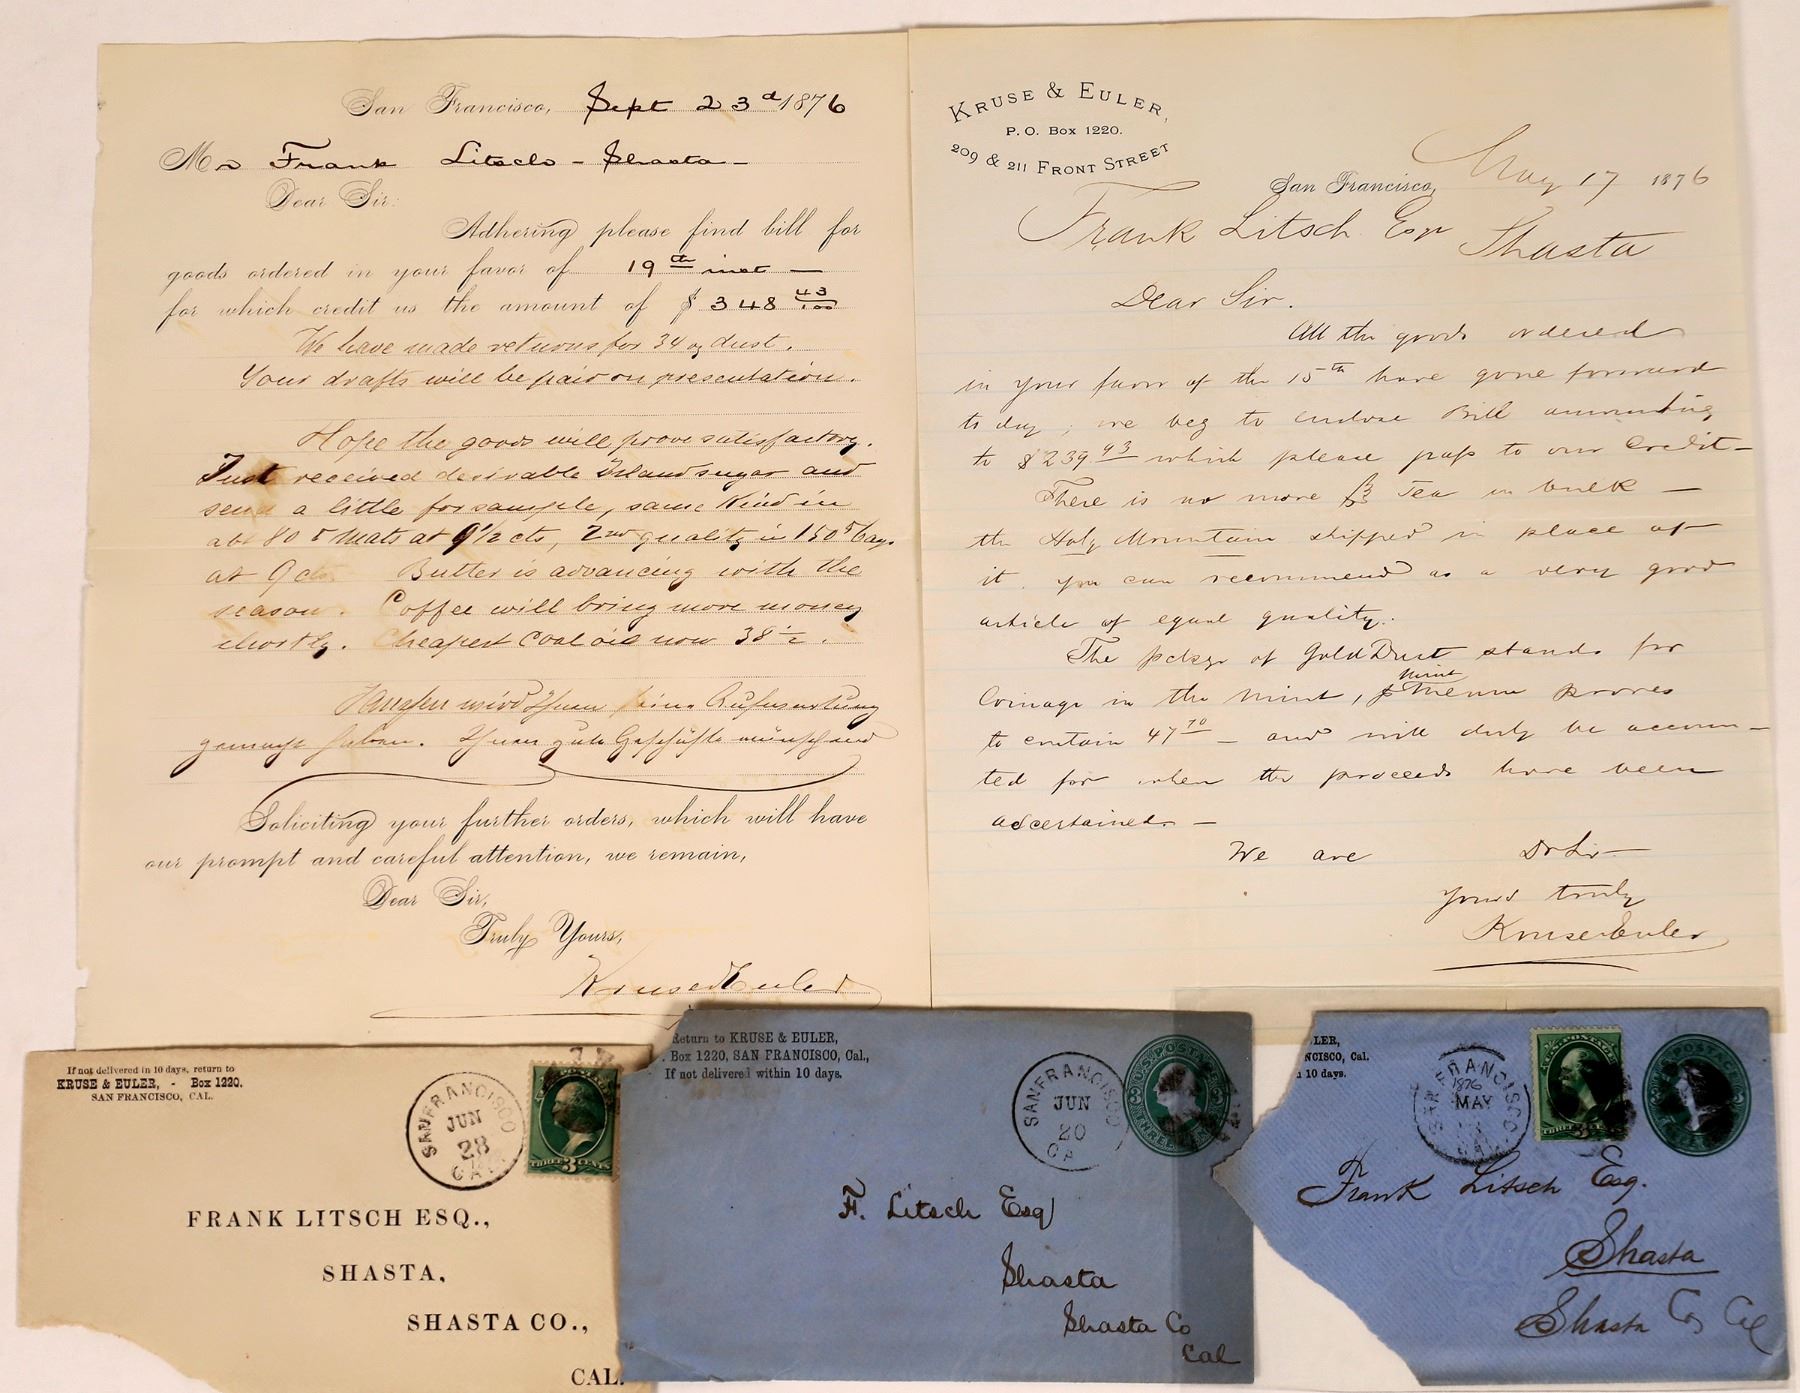 San Francisco, Sept 23d 1876
Mr Frank Litsch - Shasta -
Dear Sir:
Adhering please find bill for
goods ordered in your favor of 19th inst -
for which credit us the amount of $ 348 43/100
We have made returns for 34 oz dust.
Your drafts will be paid on presentation.
Hope the goods will prove satisfactory.
Just received desirable Island sugar and
send a little for sample, same kind in
abt 80 lb Mats at 9 1/2 cts, 2nd quality in 150 lb bags.
at 9 cts Butter is advancing with the
season. Coffee will bring more money
shortly. Cheapest Coal oil now 38 1/2.
wird Ihnen seine Aufwartung
gemacht haben. Ihnen gute Geschäfte wünschend
Soliciting your further orders, which will have
our prompt and careful attention, we remain,
Dear Sir,
Truly Yours,
Kruse & Euler
KRUSE & EULER,
P. O. Box 1220.
209 & 211 FRONT STREET
San Francisco, May 17 1876
Frank Litsch Esqr Shasta
Dear Sir.
All the goods ordered
in your favor of the 15th have gone forward
to day, we beg to enclose Bill amounting
to $239 43 which please pass to our Credit -
There is no more Tea in bulk -
the Holy Mountain shipped in place of
it. you can recommend as a very good
article of equal quality.
The pckge of Gold Dust stands for
Coinage in the Mint, Mint
to contain 47 70 - and will duly be accoun-
ted for when the proceeds have been
ascertained. -
We are Dr Sir -
Yours truly
Kruse & Euler
If not delivered in 10 days, return to
KRUSE & EULER, - Box 1220.
SAN FRANCISCO, CAL.
SAN FRANCISCO
JUN
28
CAL
THREE 3 CENTS
FRANK LITSCH ESQ.,
SHASTA,
SHASTA CO.,
CAL.
Return to KRUSE & EULER,
. Box 1220, SAN FRANCISCO, Cal.,
If not delivered within 10 days.
SAN FRANCISCO
JUN
20
CA
U.S. POSTAGE
THREE CENTS
F. Litsch Esq
Shasta
Shasta Co
Cal
LER,
NCISCO, Cal.
10 days.
SAN FRANCISCO
1876
MAY
CAL
Frank Litsch Esq.
Shasta
Shasta Co, Cal